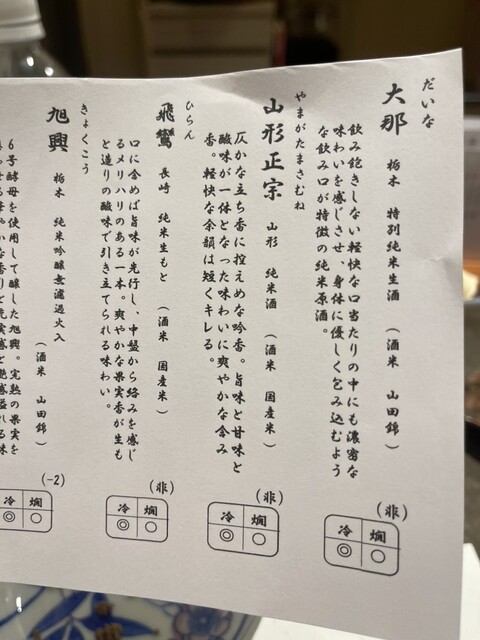 だいな
大那　栃木　特別純米生酒　（酒米　山田錦）
飲み飽きしない軽快な口当たりの中にも濃密な
味わいを感じさせ、身体に優しく包み込むよう
な飲み口が特徴の純米原酒。
(非)
冷 燗
◎ ○
やまがたまさむね
山形正宗　山形　純米酒　（酒米　国産米）
仄かな立ち香に控えめな吟香。旨味と甘味と
酸味が一体となった味わいに爽やかな含み
香。軽快な余韻は短くキレる。
(非)
冷 燗
◎ ○
ひらん
飛鸞　長崎　純米生もと　（酒米　国産米）
口に含めば旨味が先行し、中盤から絡みを感じ
るメリハリのある一本。爽やかな果実香が生も
と造りの酸味で引き立てられる味わい。
(非)
冷 燗
◎ ○
きょくこう
旭興　栃木　純米吟醸無濾過火入
（酒米　山田錦）
6号酵母を使用して醸した旭興。完熟の果実を
(-2)
冷 燗
◎ ○